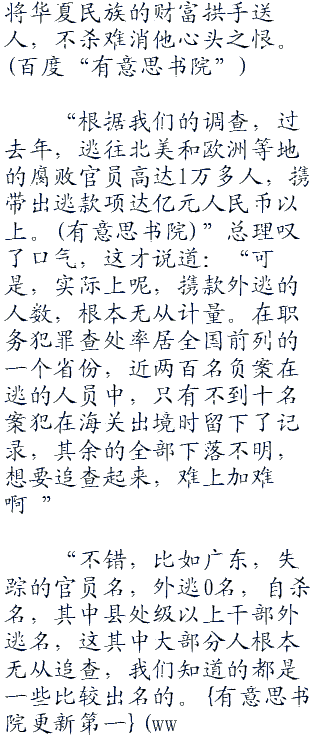 将华夏民族的财富拱手送
人，不杀难消他心头之恨。
(百度“有意思书院”)
“根据我们的调查，过
去年，逃往北美和欧洲等地
的腐败官员高达1万多人，携
带出逃款项达亿元人民币以
上。(有意思书院)”总理叹
了口气，这才说道：“可
是，实际上呢，携款外逃的
人数，根本无从计量。在职
务犯罪查处率居全国前列的
一个省份，近两百名负案在
逃的人员中，只有不到十名
案犯在海关出境时留下了记
录，其余的全部下落不明，
想要追查起来，难上加难
啊 ”
“不错，比如广东，失
踪的官员名，外逃0名，自杀
名，其中县处级以上干部外
逃名，这其中大部分人根本
无从追查，我们知道的都是
一些比较出名的。{有意思书
院更新第一}(ww